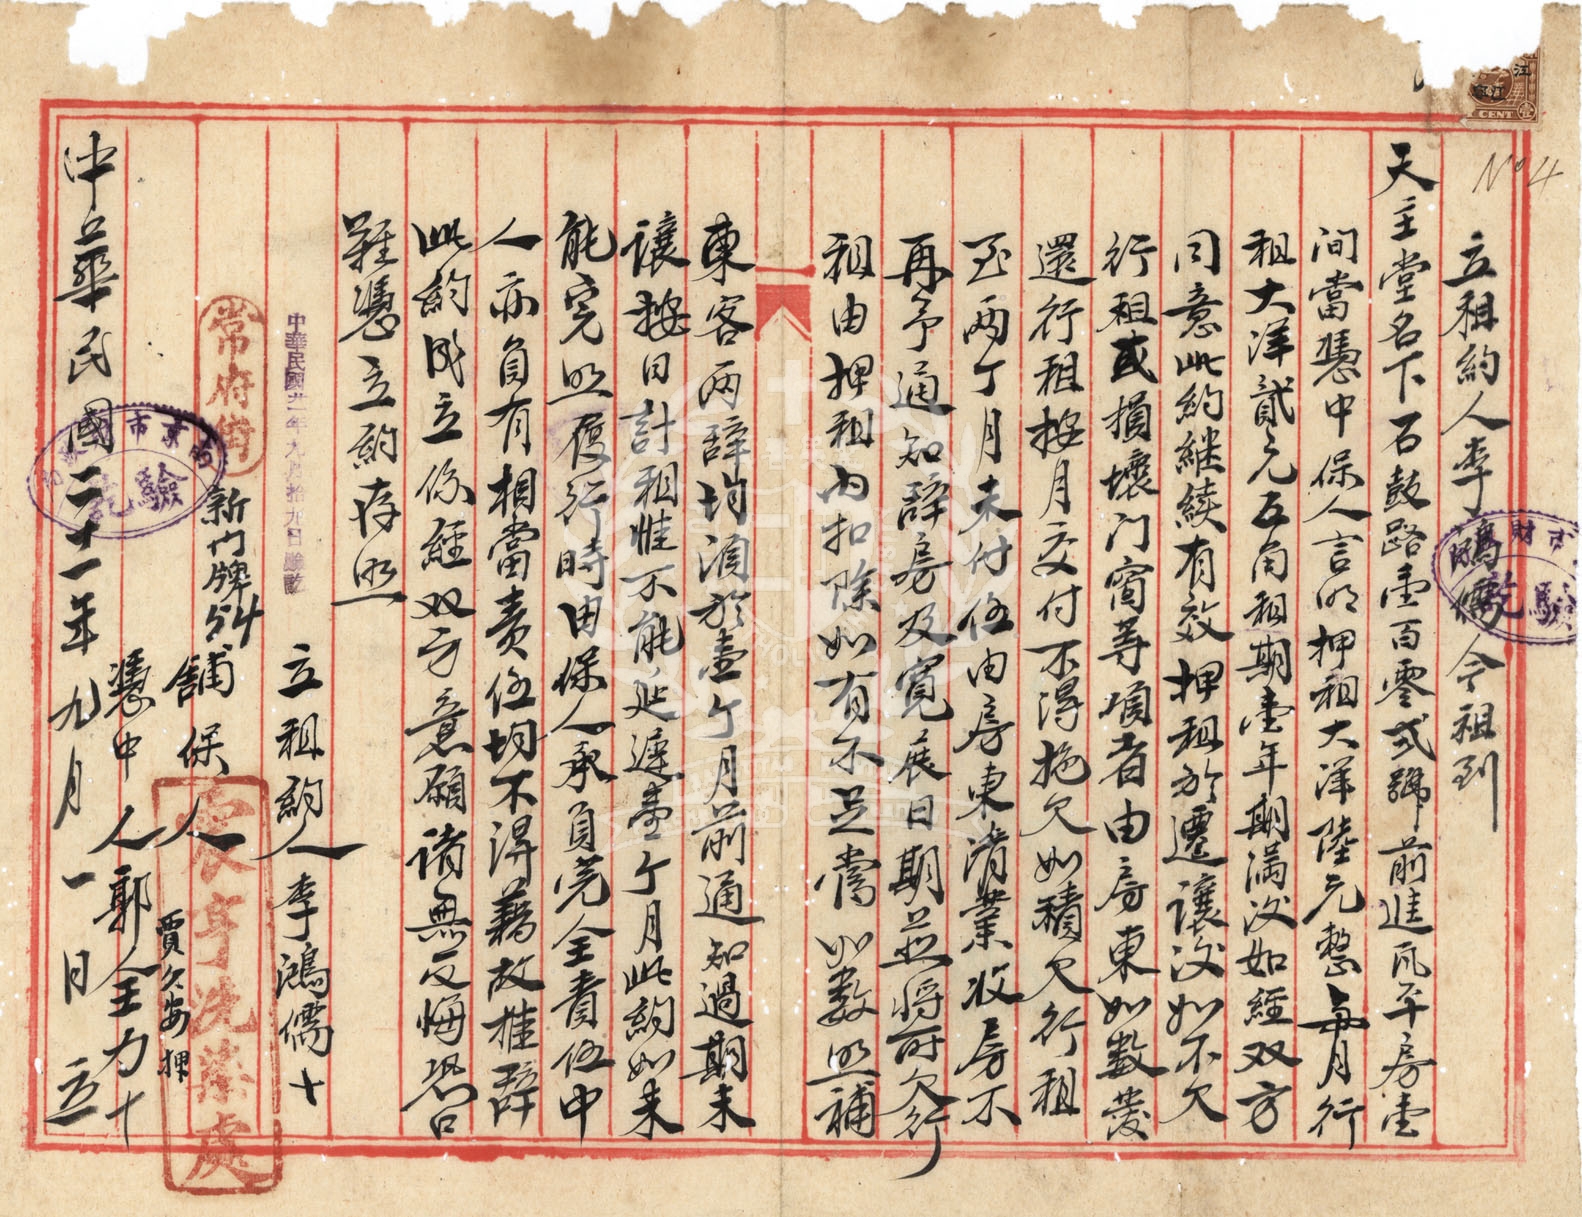 江
CENT
Nº4
立租約人李鴻儒今租到
天主堂名下石鼓路壹百零弍號前進瓦平房壹
间當憑中保人言明押租大洋陸元整每月行
租大洋貳元五角租期壹年期滿後如經双方
同意此約継續有效押租於遷讓後如不欠
行租或損壞门窗等項者由房東如數發
還行租按月交付不得拖欠如積欠行租
至两个月未付伍由房東清業收房不
再予通知辞房及寬展日期並將所欠行
租由押租内扣除如有不足當如數照補
東客两辞均須於壹个月前通知過期未
讓按日計租惟不能延遲壹个月此約如未
能完照履行時由保人承負完全責任中
人亦負有相當责任均不得藉故推辞
此約成立係經双方意願諸無反悔恐口
難憑立約存照
立租約人 李鴻儒 十
中華民國廿一年九月拾九日驗訖
常府街
新门牌54
舖保人
賈久安押
宸亨洗染處
憑中人郭全力十
中華民國二十一年九月一日 立
驗訖
市財
驗訖